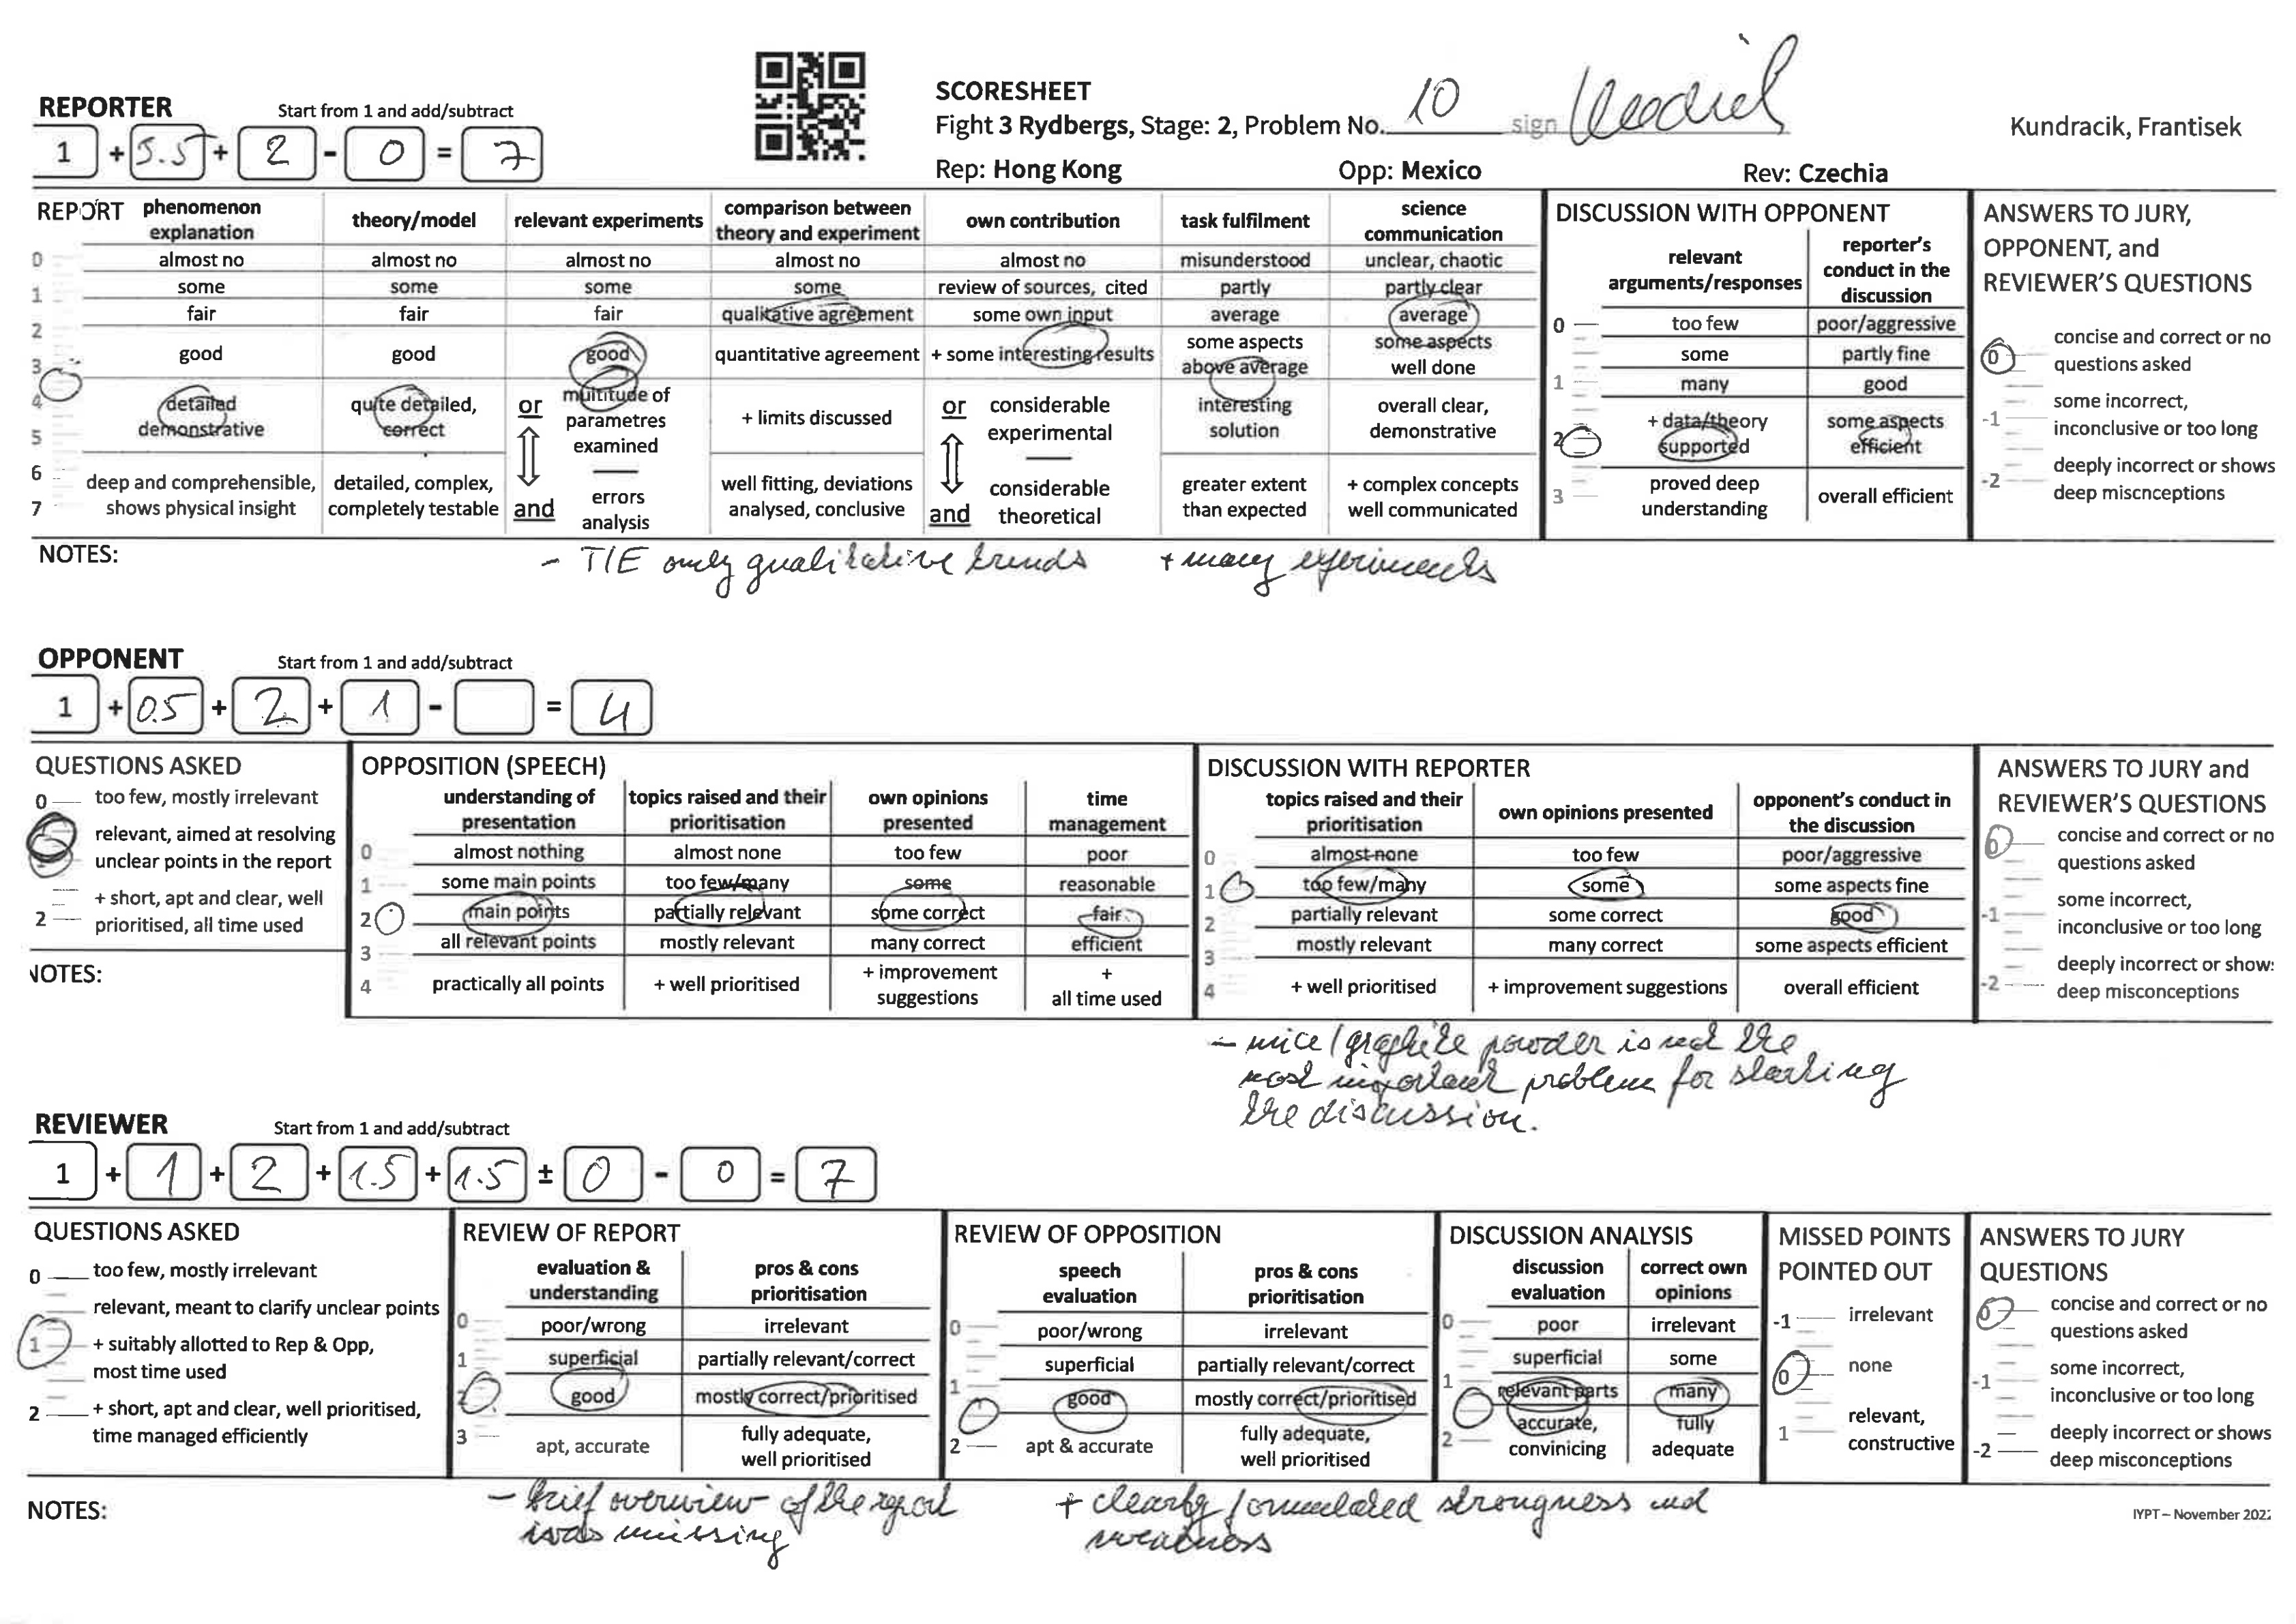 SCORESHEET
Fight 3 Rydbergs, Stage: 2, Problem No. 10 sign
Kundracik, Frantisek
Rep: Hong Kong Opp: Mexico Rev: Czechia
REPORTER Start from 1 and add/subtract
1 + 5.5 + 2 - 0 = 7
REPORT
phenomenon explanation theory/model relevant experiments comparison between theory and experiment own contribution task fulfilment science communication
0 almost no almost no almost no almost no almost no misunderstood unclear, chaotic
1 some some some some review of sources, cited partly partly clear
fair fair fair qualitative agreement some own input average average
2
3 good good good quantitative agreement + some interesting results some aspects above average some aspects well done
4 detailed quite detailed, or multitude of + limits discussed or considerable interesting overall clear,
5 demonstrative correct parametres examined experimental solution demonstrative
6 deep and comprehensible, detailed, complex, well fitting, deviations considerable greater extent + complex concepts
7 shows physical insight completely testable and errors analysis analysed, conclusive and theoretical than expected well communicated
DISCUSSION WITH OPPONENT
relevant arguments/responses reporter's conduct in the discussion
0 too few poor/aggressive
some partly fine
1 many good
2 + data/theory supported some aspects efficient
3 proved deep understanding overall efficient
ANSWERS TO JURY,
OPPONENT, and
REVIEWER'S QUESTIONS
0 concise and correct or no
questions asked
-1 some incorrect,
inconclusive or too long
-2 deeply incorrect or shows
deep miscnceptions
NOTES:
- T/E only qualitative trends + many experiments
OPPONENT Start from 1 and add/subtract
1 + 0.5 + 2 + 1 - = 4
QUESTIONS ASKED
0 too few, mostly irrelevant
relevant, aimed at resolving
unclear points in the report
+ short, apt and clear, well
2 prioritised, all time used
NOTES:
OPPOSITION (SPEECH)
understanding of presentation topics raised and their prioritisation own opinions presented time management
0 almost nothing almost none too few poor
1 some main points too few/many some reasonable
2 main points partially relevant some correct fair
3 all relevant points mostly relevant many correct efficient
4 practically all points + well prioritised + improvement suggestions + all time used
DISCUSSION WITH REPORTER
topics raised and their prioritisation own opinions presented opponent's conduct in the discussion
0 almost none too few poor/aggressive
1 too few/many some some aspects fine
2 partially relevant some correct good
3 mostly relevant many correct some aspects efficient
4 + well prioritised + improvement suggestions overall efficient
ANSWERS TO JURY and
REVIEWER'S QUESTIONS
0 concise and correct or no
questions asked
-1 some incorrect,
inconclusive or too long
-2 deeply incorrect or show:
deep misconceptions
- mice/graphite powder is not the
most important problem for starting
the discussion.
REVIEWER Start from 1 and add/subtract
1 + 1 + 2 + 1.5 + 1.5 ± 0 - 0 = 7
QUESTIONS ASKED
0 too few, mostly irrelevant
relevant, meant to clarify unclear points
1 + suitably allotted to Rep & Opp,
most time used
2 + short, apt and clear, well prioritised,
time managed efficiently
REVIEW OF REPORT
evaluation & understanding pros & cons prioritisation
0 poor/wrong irrelevant
1 superficial partially relevant/correct
2 good mostly correct/prioritised
3 apt, accurate fully adequate, well prioritised
REVIEW OF OPPOSITION
speech evaluation pros & cons prioritisation
0 poor/wrong irrelevant
superficial partially relevant/correct
1 good mostly correct/prioritised
2 apt & accurate fully adequate, well prioritised
DISCUSSION ANALYSIS
discussion evaluation correct own opinions
0 poor irrelevant
superficial some
1 relevant parts many
2 accurate, convinicing fully adequate
MISSED POINTS
POINTED OUT
-1 irrelevant
0 none
1 relevant, constructive
ANSWERS TO JURY
QUESTIONS
0 concise and correct or no
questions asked
-1 some incorrect,
inconclusive or too long
-2 deeply incorrect or shows
deep misconceptions
NOTES:
- brief overview of the report
was missing
+ clearly formulated strongness and
weakness
IYPT – November 202